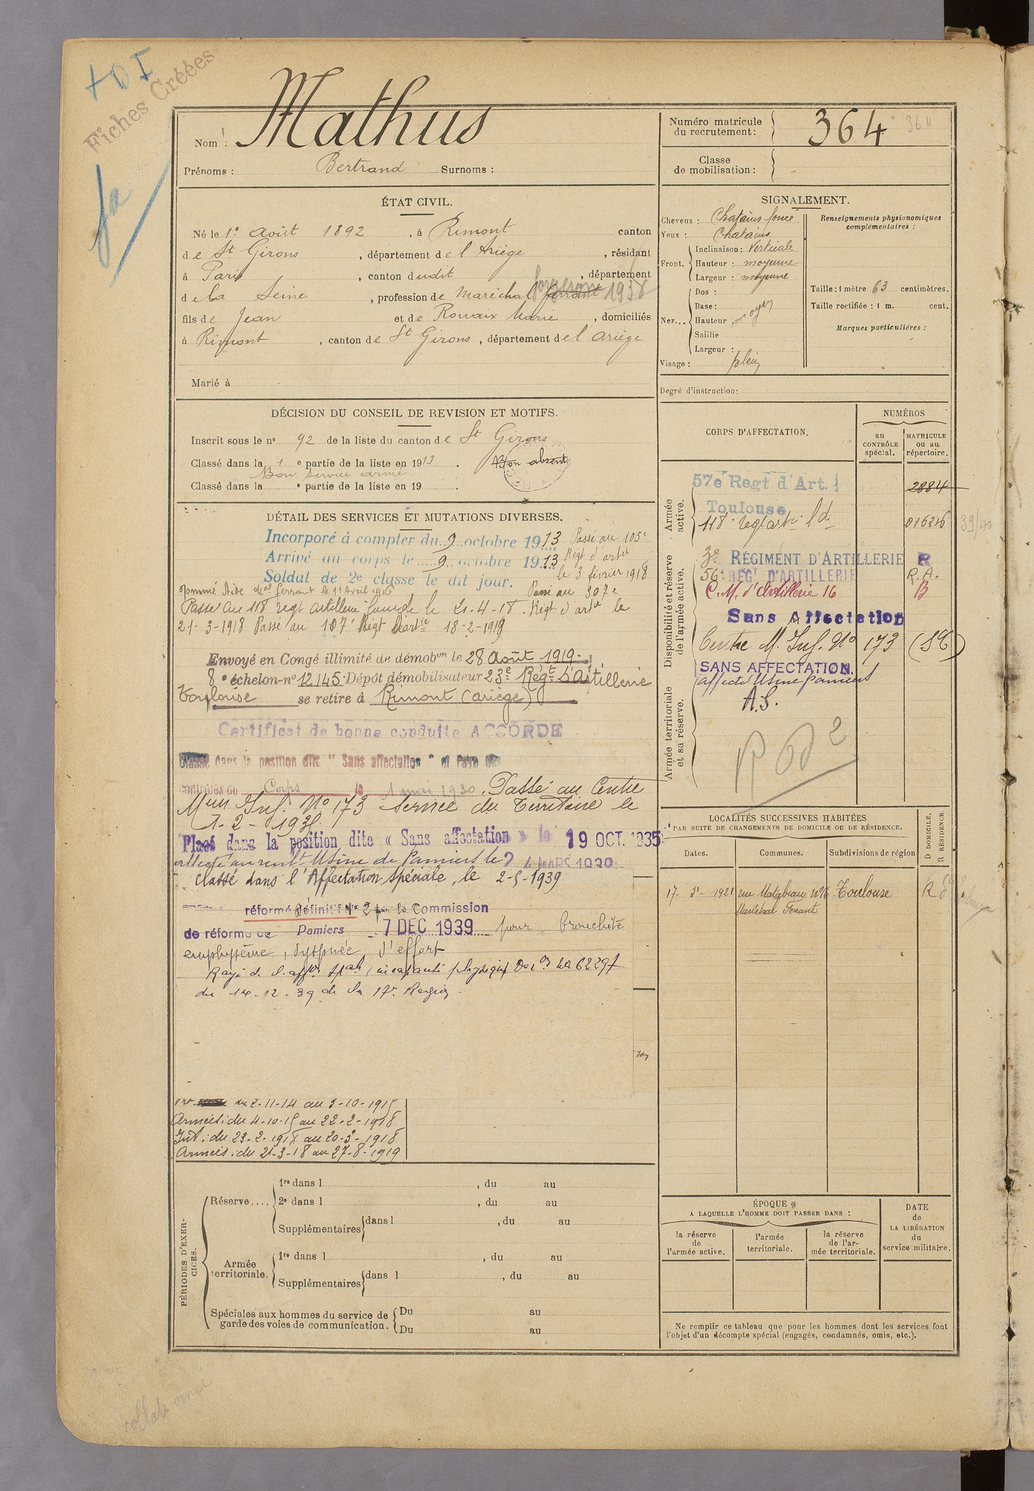 + D I
Fiches Créées
fa
Nom : Mathus
Prénoms : Bertrand Surnoms :
Numéro matricule du recrutement : 364 364
Classe de mobilisation :
ÉTAT CIVIL.
Né le 1er Août 1892, à Rimont canton
de St Girons, département de l'Ariège, résidant
à Paris, canton dudit, département
de la Seine, profession de Maréchal ferrant forgeron 1938
fils de Jean et de Rouaix Marie, domiciliés
à Rimont, canton de St Girons, département de l'Ariège
Marié à
SIGNALEMENT.
Cheveux : Chatains fonce
Yeux : Chatains
Front. Inclinaison : Verticale
Hauteur : moyenne
Largeur : moyenne
Nez... Dos :
Base :
Hauteur moyen
Saillie
Largeur :
Visage : plein
Renseignements physionomiques complémentaires :
Taille : 1 mètre 63 centimètres.
Taille rectifiée : 1 m. cent.
Marques particulières :
Degré d'instruction :
DÉCISION DU CONSEIL DE REVISION ET MOTIFS.
Inscrit sous le n° 92 de la liste du canton de St Girons
Classé dans la 1e partie de la liste en 1913. Bon absent
Bon service armé
Classé dans la e partie de la liste en 19 .
DÉTAIL DES SERVICES ET MUTATIONS DIVERSES.
Incorporé à compter du 9 octobre 1913 Passé au 105e
Arrivé au corps le 9 octobre 1913 Regt d'artie
Soldat de 2e classe le dit jour. le 3 février 1918
Nommé Aide mal ferrant le 1er Avril 1916 Passé au 307e
Passé au 118 regt artillerie lourde le 21-4-18 - Regt d'artie le
21-3-1918 Passé au 107e Regt d'artie 18-2-1919
Envoyé en Congé illimité de démobon le 28 Août 1919
8e échelon-n° 12145. Dépôt démobilisateur 23e Regt d'Artillerie
Toulouse se retire à Rimont (Ariège)
Certificat de bonne conduite ACCORDÉ
dans la position dite "Sans affectation"
Corps le 1 mai 1930. Passé au Centre
Mon Inf. N° 173 Service du Territoire le
1-2-1935
Placé dans la position dite « Sans affectation » le 19 OCT. 1935
Usine de Pamiers le 24 MARS 1939
classé dans l'Affectation spéciale, le 2-5-1939
réformé définitif N° 2 par la Commission
de réforme de Pamiers 7 DEC 1939 pour bronchite
emphysème, dyspnée d'effort
Rayé de l'affon spale, incapacité physique
du 14-12-39 de la 17e Région
du 2-11-14 au 3-10-1915
Armées : du 4-10-15 au 22-2-1918
Int. : du 23-2-1918 au 20-3-1918
Armées : du 21-3-18 au 27-8-1919
CORPS D'AFFECTATION.
NUMÉROS
au CONTRÔLE spécial.
MATRICULE ou au répertoire.
Armée active.
57e Regt d'Art. 2884
Toulouse
118e regt artie ld 016326 39/40
Disponibilité et réserve de l'armée active.
3e RÉGIMENT D'ARTILLERIE R
56e REGt D'ARTILLERIE R.A.
C.M. d'Artillerie 16 B
Sans Affectation
Centre M. Inf. N° 173 (SG)
SANS AFFECTATION.
affecté Usine Pamiers
A.S.
Armée territoriale et sa réserve.
Rod 2
LOCALITÉS SUCCESSIVES HABITÉES
PAR SUITE DE CHANGEMENTS DE DOMICILE OU DE RÉSIDENCE.
Dates. Communes. Subdivisions de région D DOMICILE. R RÉSIDENCE.
17. 3. 1921 Toulouse R
Maréchal Ferrant
PÉRIODES D'EXERCICES.
Réserve.... 1re dans l , du au
2e dans l , du au
Supplémentaires dans l , du au
Armée territoriale. 1re dans l , du au
Supplémentaires dans l , du au
Spéciales aux hommes du service de garde des voies de communication. Du au
Du au
ÉPOQUE
A LAQUELLE L'HOMME DOIT PASSER DANS :
la réserve de l'armée active.
l'armée territoriale.
la réserve de l'armée territoriale.
DATE de LA LIBÉRATION du service militaire.
Ne remplir ce tableau que pour les hommes dont les services font
l'objet d'un décompte spécial (engagés, condamnés, omis, etc.).